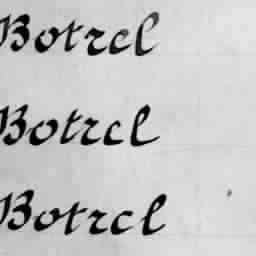 Botrel
Botrel
Botrel